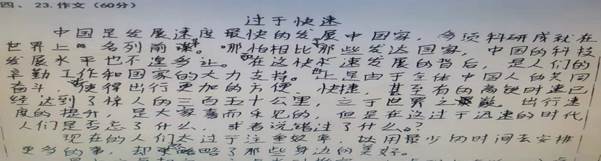 四、23.作文(60分)
过于快速
中国是发展速度最快的发展中国家，多项科研成就在
世界上名列前茅。那怕相比那些发达国家，中国的科技
发展水平也不遑多让。在这快速发展的背后，是人们的
辛勤工作和国家的大力支持。正是由于全体中国人的共同
奋斗，使得出行更加的方便、快捷，甚至有的高铁时速已
经达到了惊人的三百五十公里，立于世界之巅。出行速
度的提升，是大家喜而乐见的，但是在这过于迅速的时代，
人们是否忘了什么，或者说错过了什么。？
现在的人们太过于注重效率，达用最少切时间去安排
更多的事，却忽略了那些身边的美好。